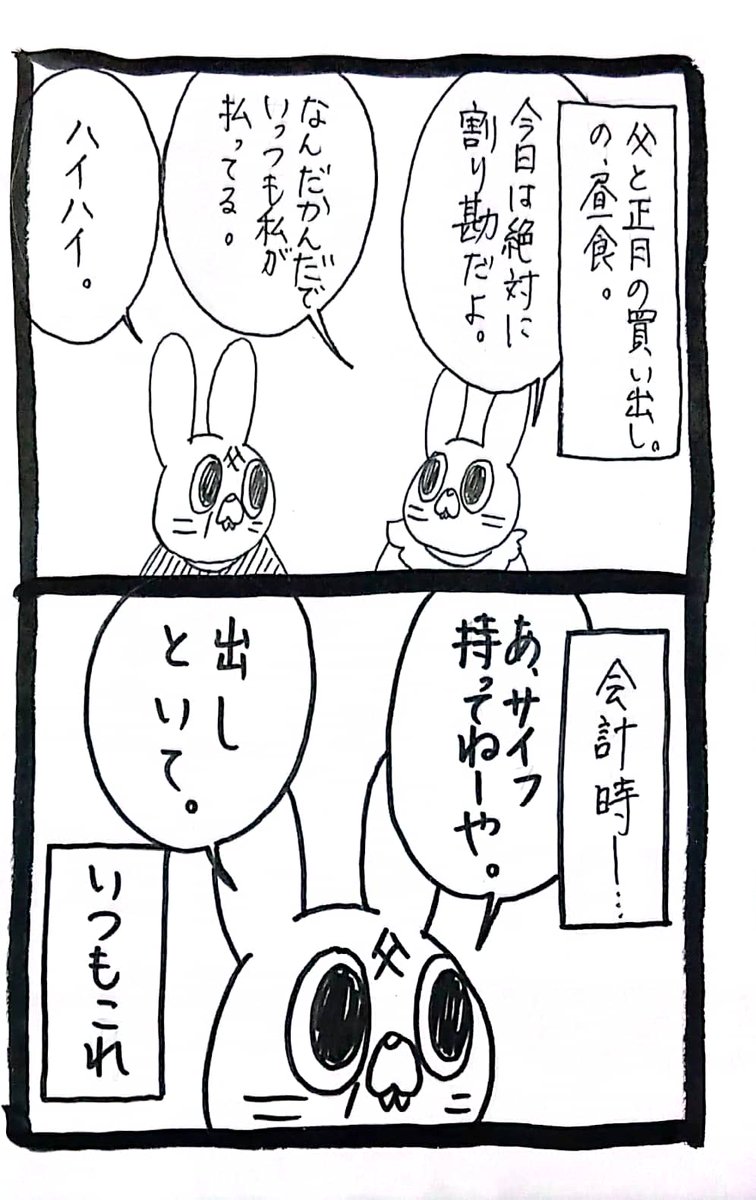 父と正月の買い出し。
の、昼食。
今日は絶対に
割り勘だよ。
なんだかんだで
いっつも私が
払ってる。
ハイハイ。
父
会計時ー…
あ、サイフ
持ってねーや。
出し
といて。
父
いつもこれ